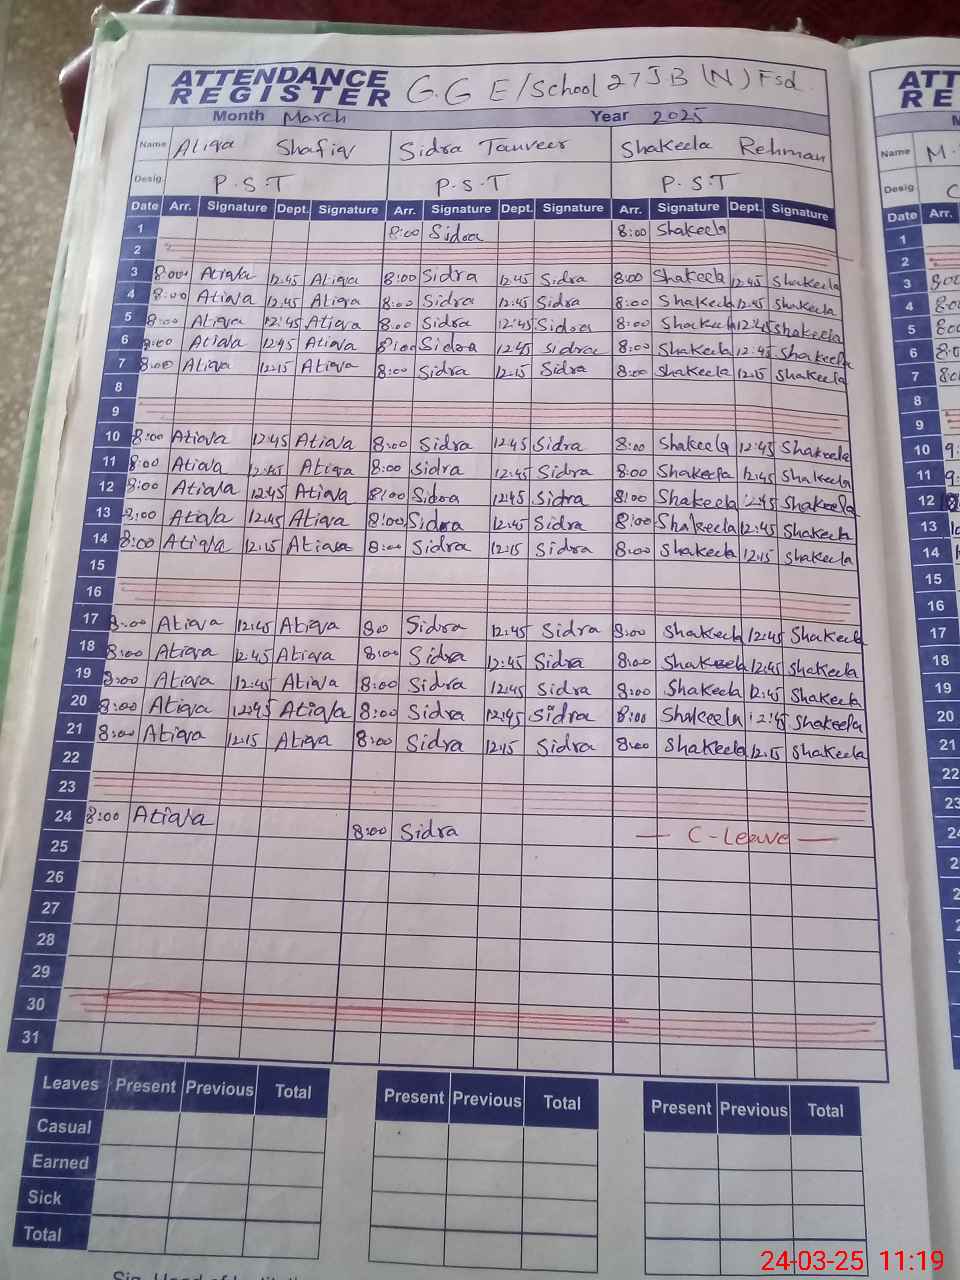 ATTENDANCE REGISTER G.G E/School 27 JB (N) Fsd.
Month March Year 2025
Name Atiqa Shafiq Sidra Tanveer Shakeela Rehman
Desig. P.S.T P.S.T P.S.T
Date Arr. Signature Dept. Signature Arr. Signature Dept. Signature Arr. Signature Dept. Signature
1 8:00 Sidra 8:00 Shakeela
2
3 8:00 Atiqa 12:45 Atiqa 8:00 Sidra 12:45 Sidra 8:00 Shakeela 12:45 Shakeela
4 8:00 Atiqa 12:45 Atiqa 8:00 Sidra 12:45 Sidra 8:00 Shakeela 12:45 Shakeela
5 8:00 Atiqa 12:45 Atiqa 8:00 Sidra 12:45 Sidra 8:00 Shakeela 12:45 Shakeela
6 8:00 Atiqa 12:45 Atiqa 8:00 Sidra 12:45 Sidra 8:00 Shakeela 12:45 Shakeela
7 8:00 Atiqa 12:15 Atiqa 8:00 Sidra 12:15 Sidra 8:00 Shakeela 12:15 Shakeela
8
9
10 8:00 Atiqa 12:45 Atiqa 8:00 Sidra 12:45 Sidra 8:00 Shakeela 12:45 Shakeela
11 8:00 Atiqa 12:45 Atiqa 8:00 Sidra 12:45 Sidra 8:00 Shakeela 12:45 Shakeela
12 8:00 Atiqa 12:45 Atiqa 8:00 Sidra 12:45 Sidra 8:00 Shakeela 12:45 Shakeela
13 8:00 Atiqa 12:45 Atiqa 8:00 Sidra 12:45 Sidra 8:00 Shakeela 12:45 Shakeela
14 8:00 Atiqa 12:15 Atiqa 8:00 Sidra 12:15 Sidra 8:00 Shakeela 12:15 Shakeela
15
16
17 8:00 Atiqa 12:45 Atiqa 8:00 Sidra 12:45 Sidra 8:00 Shakeela 12:45 Shakeela
18 8:00 Atiqa 12:45 Atiqa 8:00 Sidra 12:45 Sidra 8:00 Shakeela 12:45 Shakeela
19 8:00 Atiqa 12:45 Atiqa 8:00 Sidra 12:45 Sidra 8:00 Shakeela 12:45 Shakeela
20 8:00 Atiqa 12:45 Atiqa 8:00 Sidra 12:45 Sidra 8:00 Shakeela 12:45 Shakeela
21 8:00 Atiqa 12:15 Atiqa 8:00 Sidra 12:15 Sidra 8:00 Shakeela 12:15 Shakeela
22
23
24 8:00 Atiqa 8:00 Sidra — C-Leave —
25
26
27
28
29
30
31
Leaves Present Previous Total Present Previous Total Present Previous Total
Casual
Earned
Sick
Total
Name M.
Desig.
Date Arr.
1
2
3
4
5
6
7
8
9
10
11
12
13
14
15
16
17
18
19
20
21
22
23
24-03-25 11:19